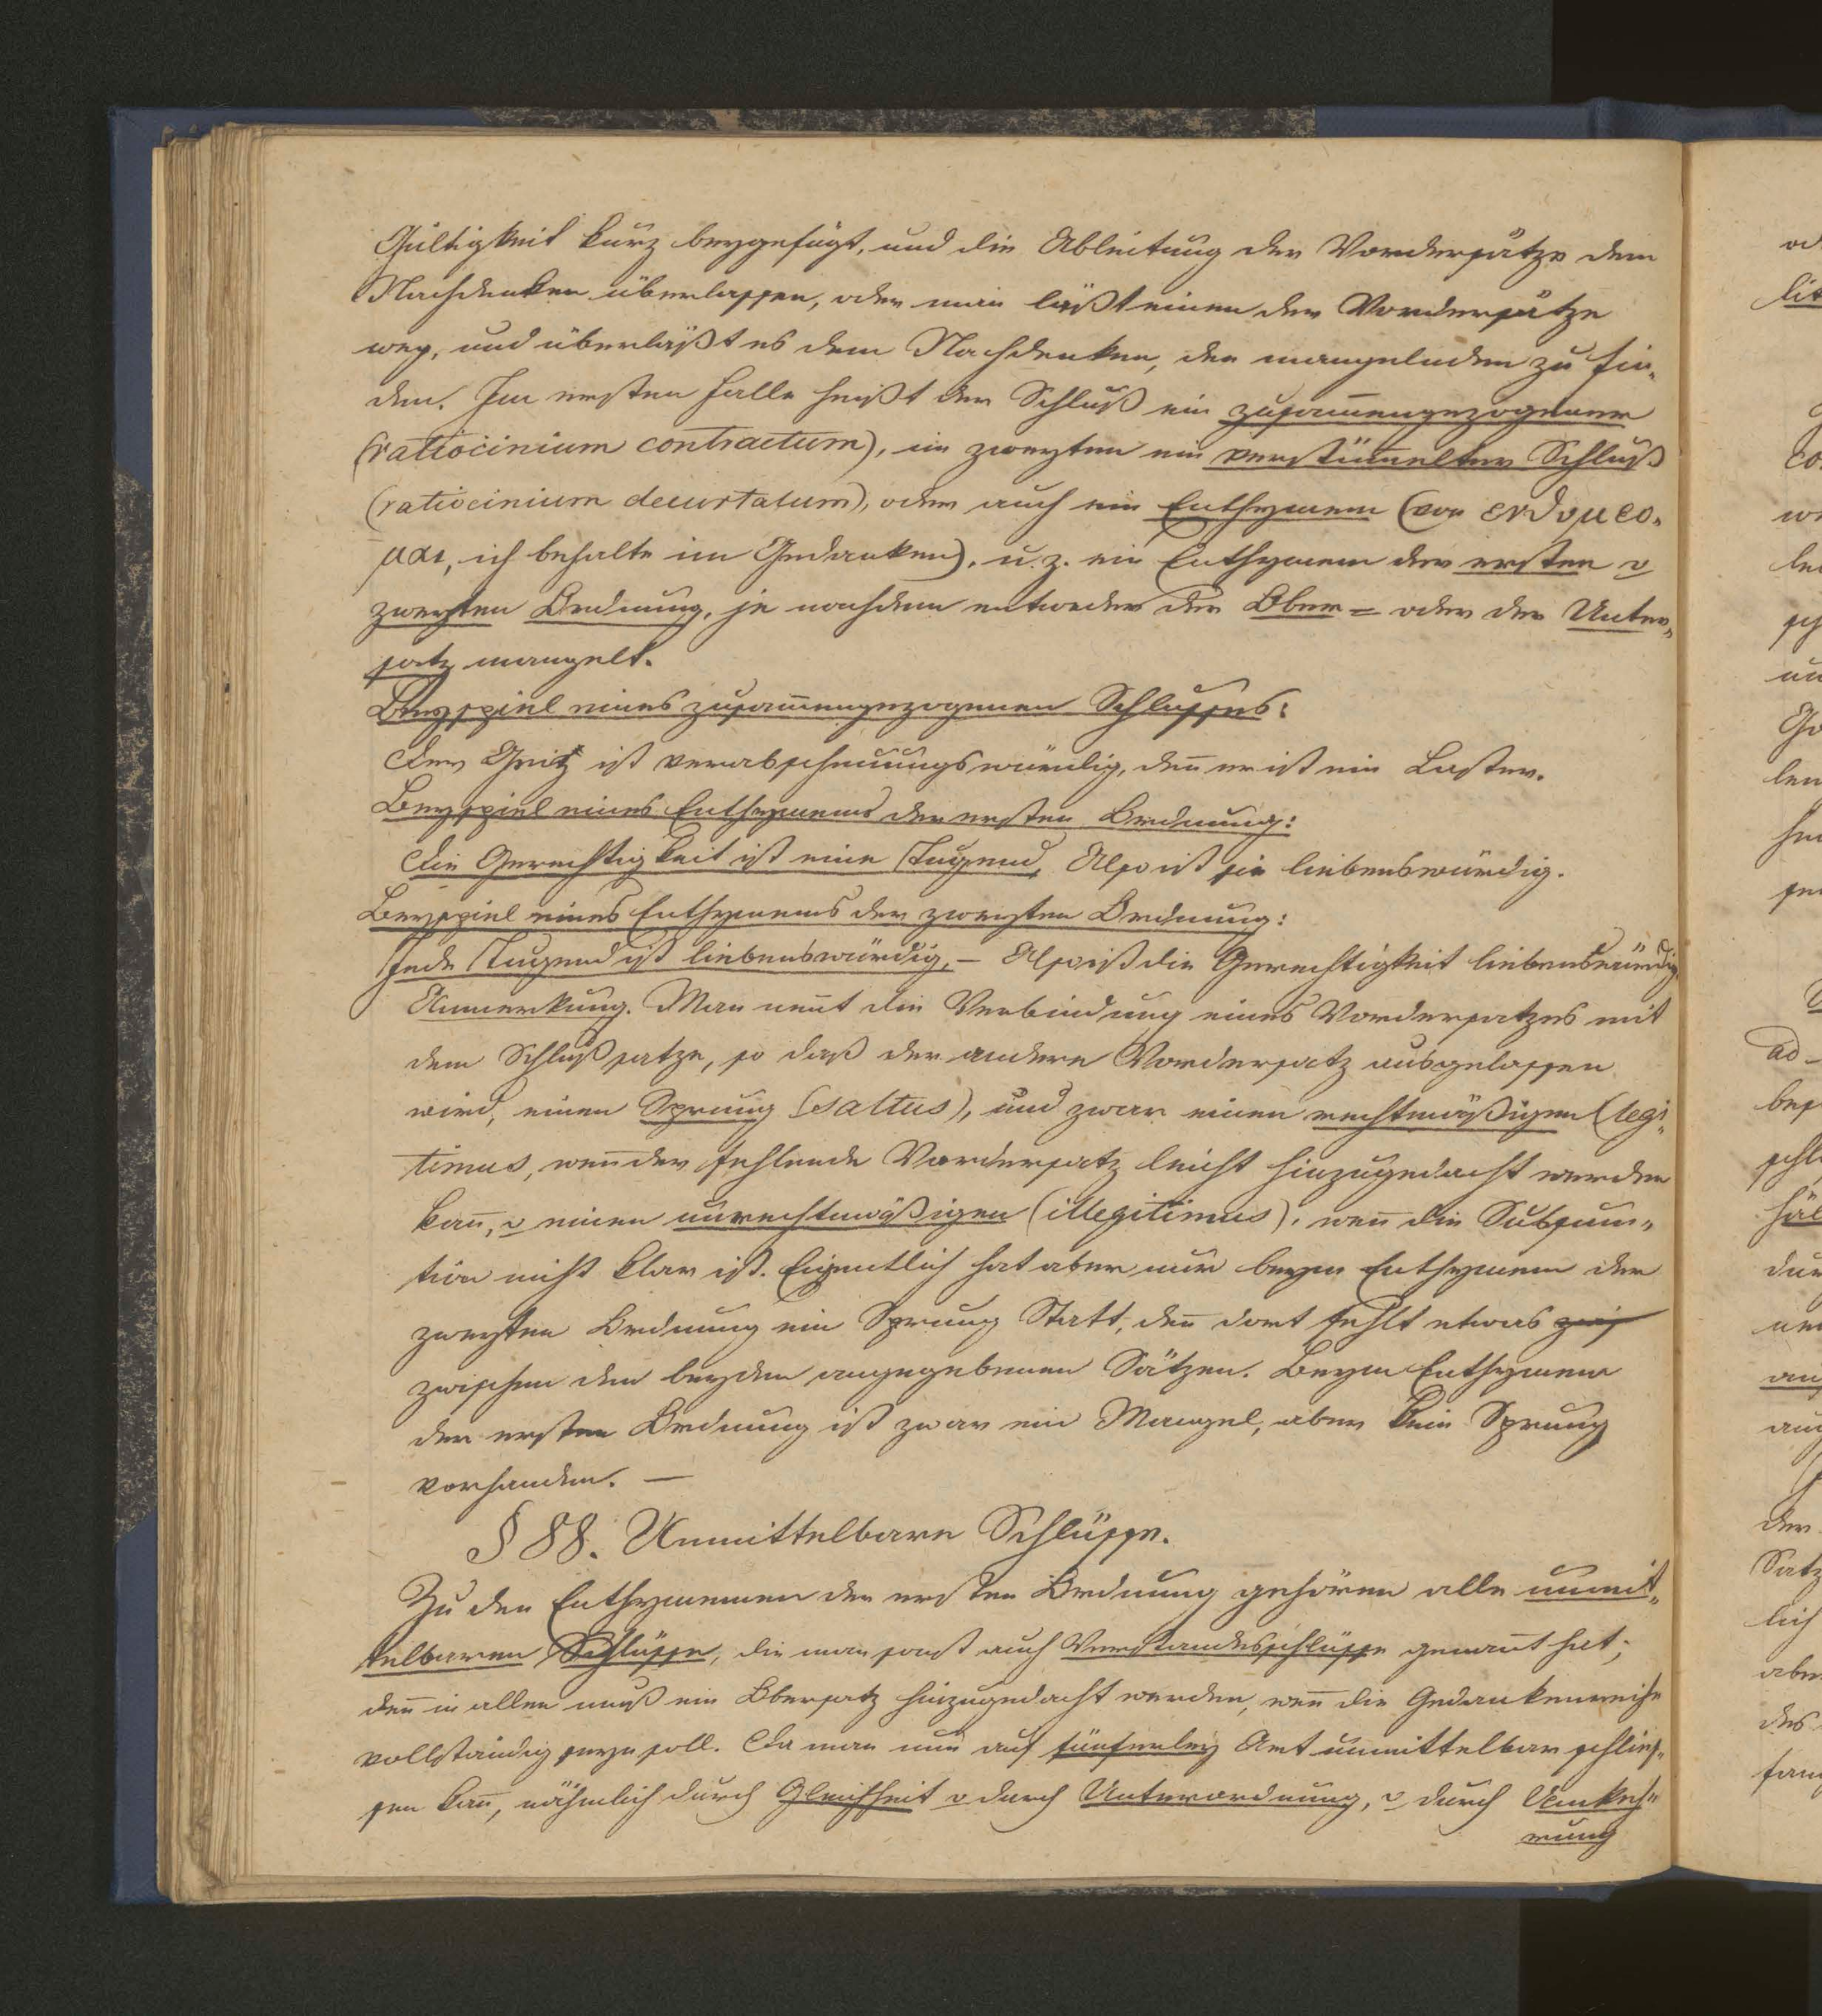 Gültigkeit kurz beygefügt, und die Ableitung der Vordersätze dem
Nachdenken überlassen, oder man läßt einen der Vordersätze
weg, und überläßt es dem Nachdenken, den mangelnden zu fin-
den. Im ersten Falle heißt der Schluß ein zusam̄engezogener
(ratiocinium contractum), im zweyten ein verstüm̄elter Schluß
(ratiocinium decurtatum), oder auch ein Enthymem (von ενθυμεο-
μαι, ich behalte im Gedanken), u. z. ein Enthymem der ersten v
zweyten Ordnung, je nachdem entweder der Ober= oder der Unter-
satz mangelt.
Beyspiel eines zusam̄engezogenen Schlusses:
Der Geitz ist verabscheuungswürdig, den̄ er ist ein Laster.
Beyspiel eines Enthymems der ersten Ordnung:
Die Gerechtigkeit ist eine Tugend, Also ist sie liebenswürdig.
Beyspiel eines Enthymems der zweyten Ordnung:
Jede Tugend ist liebenswürdig, – Also ist die Gerechtigkeit liebenswürdig.
Anmerkung. Man nen̄t die Verbindung eines Vordersatzes mit
dem Schlußsatze, so daß der andere Vordersatz ausgelassen
wird, einen Sprung (saltus), und zwar einen rechtmäßigen (legi-
timus, wen̄ der fehlende Vordersatz leicht hinzugedacht werden
kan̄, v einen unrechtmäßigen (illegitimus), wen̄ die Subsum-
tion nicht klar ist. Eigentlich hat aber nur beym Enthymem der
zweyten Ordnung ein Sprung Statt, den̄ dort fehlt etwas
zwischen den beyden angegebenen Sätzen. Beym Enthymem
der ersten Ordnung ist zwar ein Mangel, aber kein Sprung
vorhanden. —
§ 88. Unmittelbare Schlüsse.
Zu den Enthymemen der ersten Ordnung gehören alle unmit-
telbaren Schlüsse, die man sonst auch Verstandesschlüsse genan̄t hat;
den̄ in allen muß ein Obersatz hinzugedacht werden, wen̄ die Gedankenreihe
vollständig seyn soll. Da man nun auf fünferley Art unmittelbar schlies-
sen kan̄, nähmlich durch Gleichheit v durch Unterordnung, v durch Umkeh-
rung